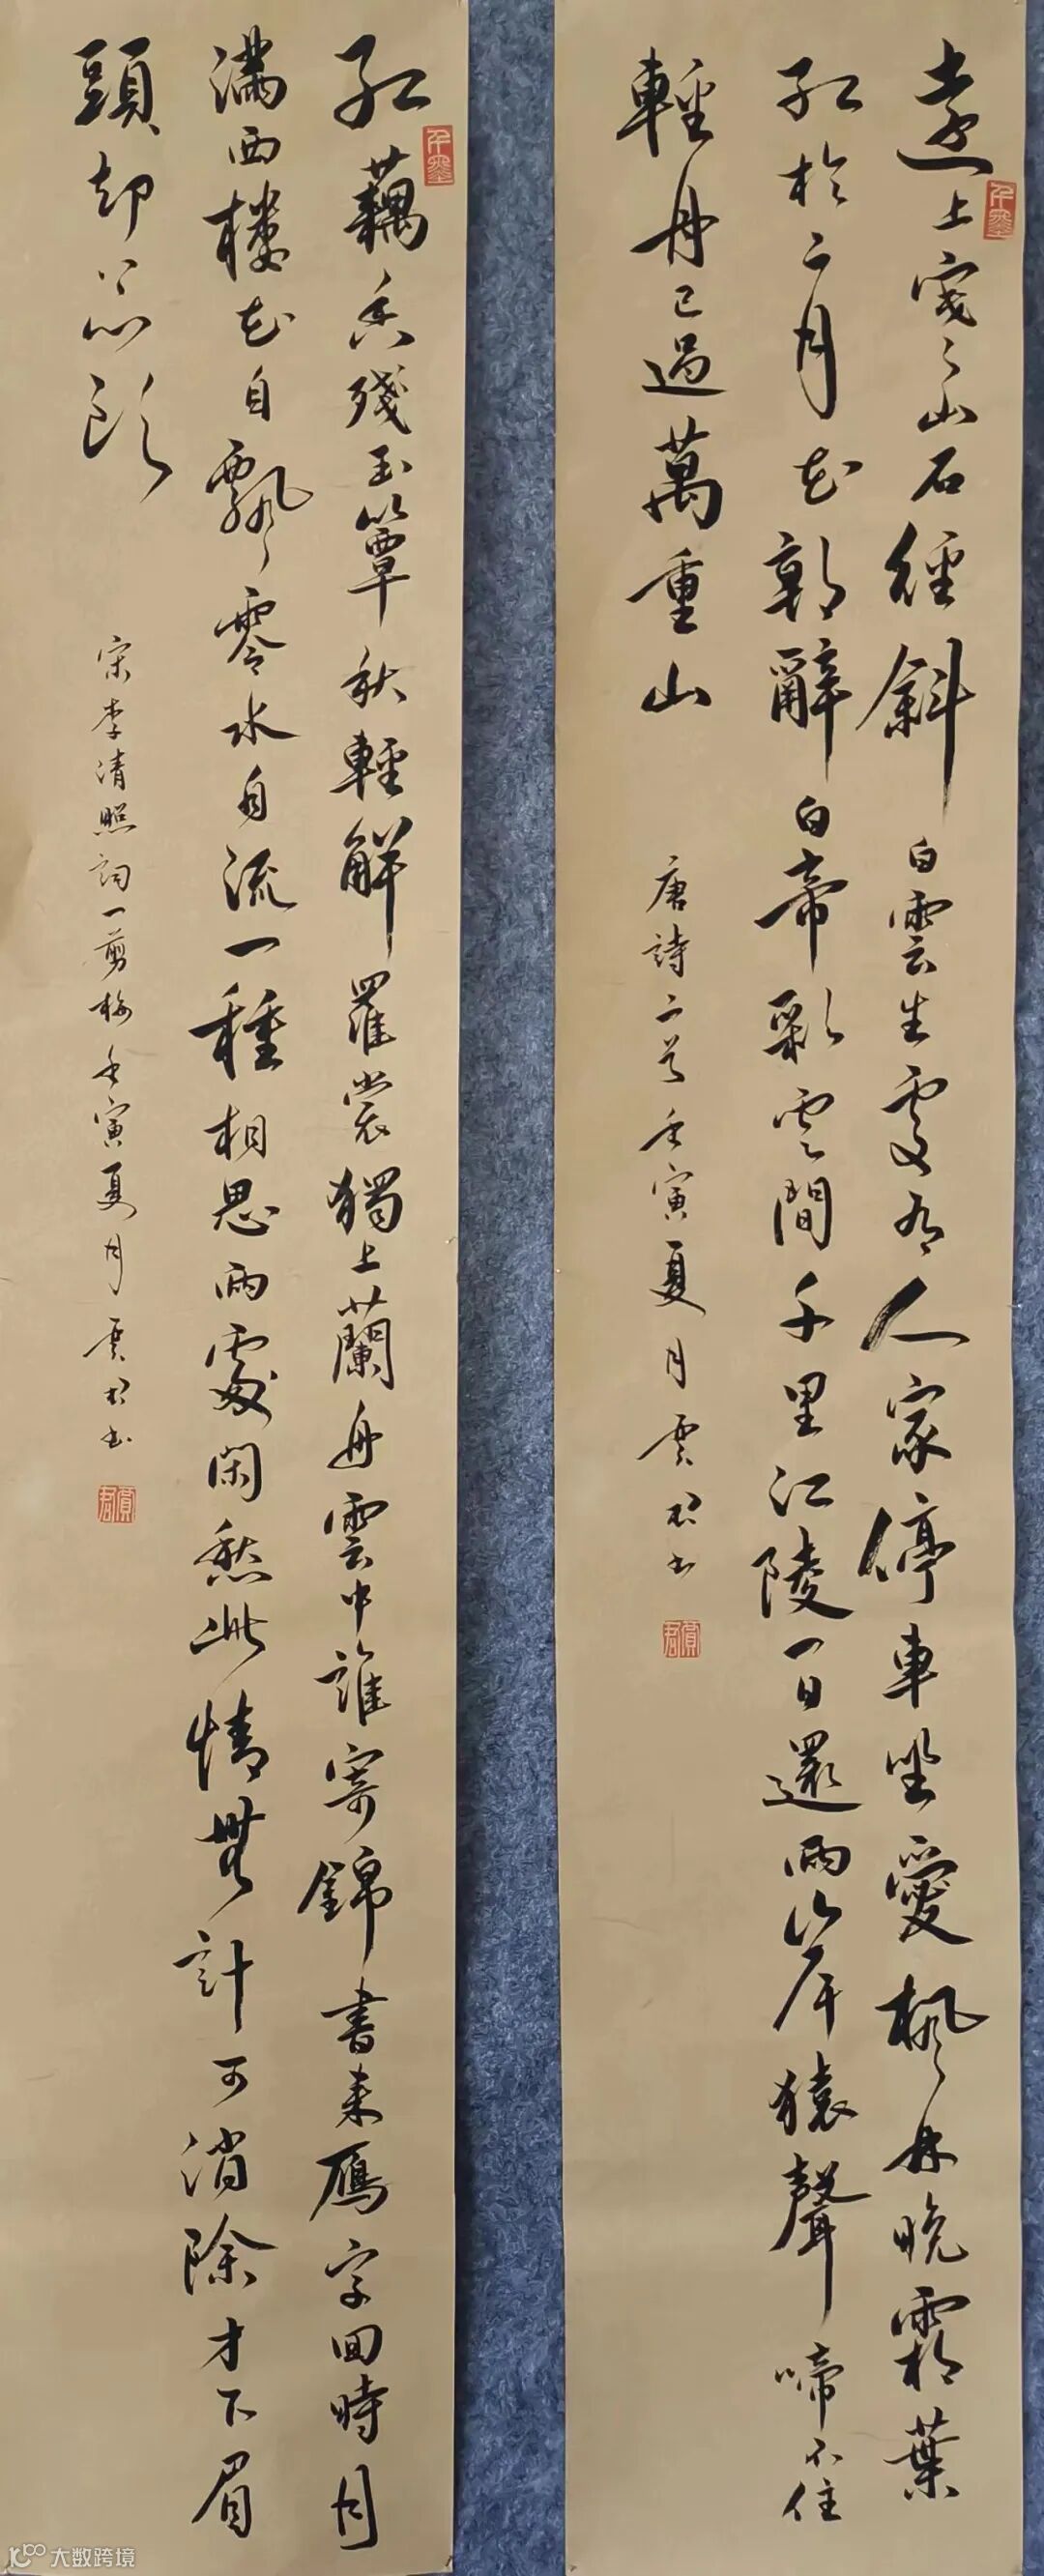 遠上寒山石徑斜白雲生處有人家停車坐愛楓林晚霜葉
紅於二月花朝辭白帝彩雲間千里江陵一日還兩岸猿聲啼不住
輕舟已過萬重山
唐詩二首壬寅夏月雲松書
紅藕香殘玉簟秋輕解羅裳獨上蘭舟雲中誰寄錦書來雁字回時月
滿西樓花自飄零水自流一種相思兩處閑愁此情無計可消除才下眉
頭却上心頭
宋李清照詞一剪梅壬寅夏月雲松書
大数跨境